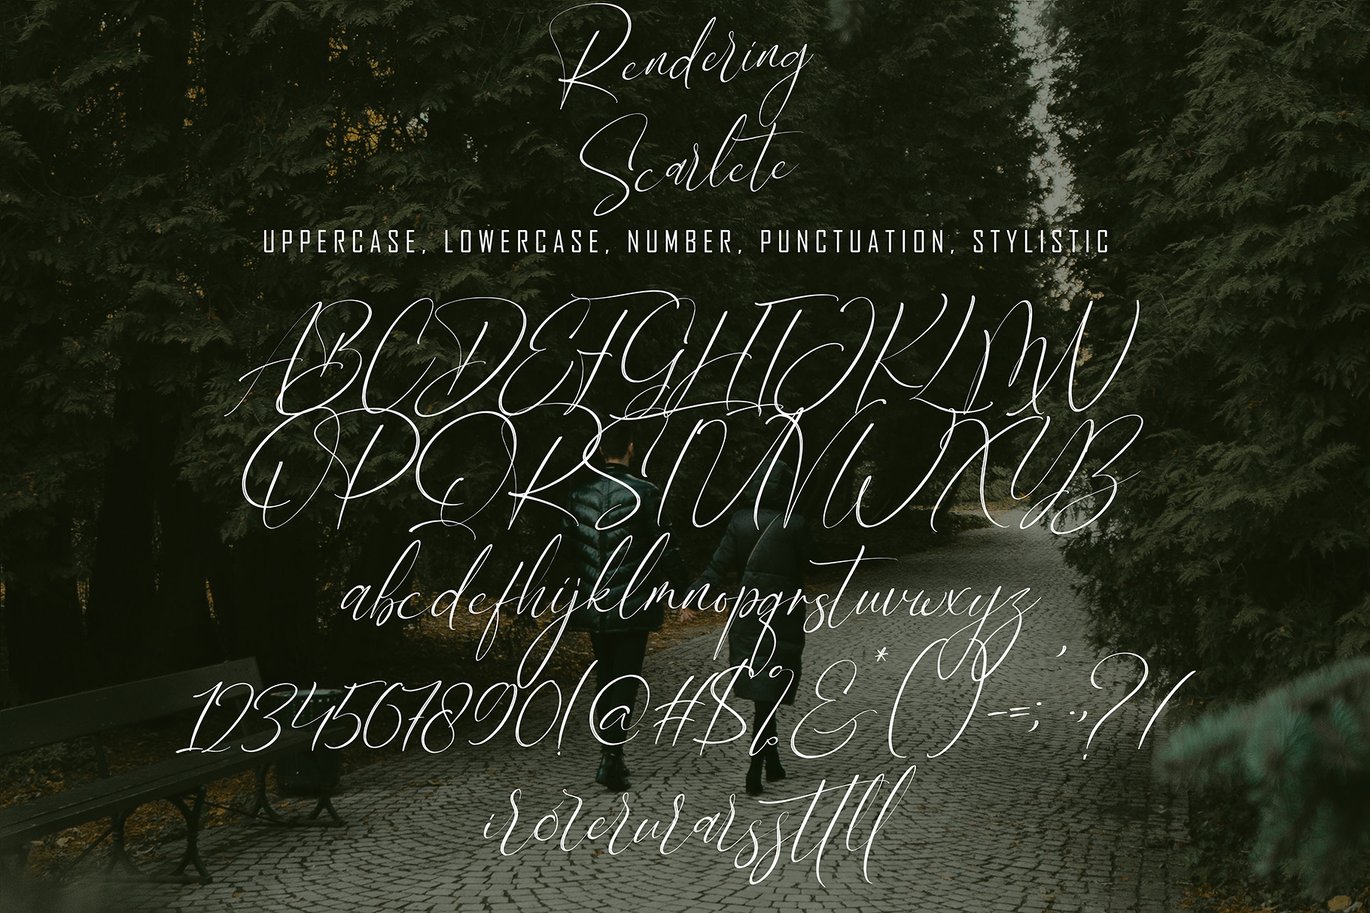 Rendering
Scarlete
UPPERCASE, LOWERCASE, NUMBER, PUNCTUATION, STYLISTIC
ABCDEFGHIJKLMN
OPQRSTUVWXYZ
abcdefhijklmnopqrstuvwxyz
1234567890!@#$%&*()--=;:.,?/